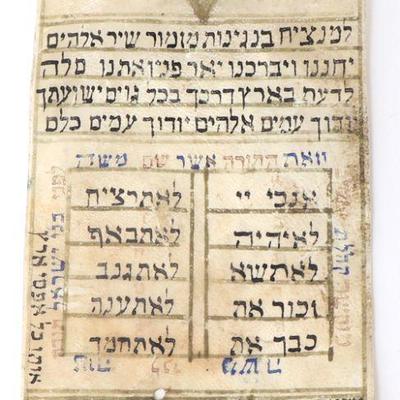 למנציח בנגינות מזמור שיר אלהים
יחננו ויברכנו יאר פניו אתנו סלה
לדעת בארץ דרכך בכל גוים ישועתך
יודוך עמים אלהים יודוך עמים כלם
וזאת התורה אשר שם משה
אנכי יי
לא יהיה
לא תשא
זכור את
כבך את
לא תרציח
לא תנאף
לא תגנב
לא תענה
לא תחמד
אותו כל אפסי ארץ